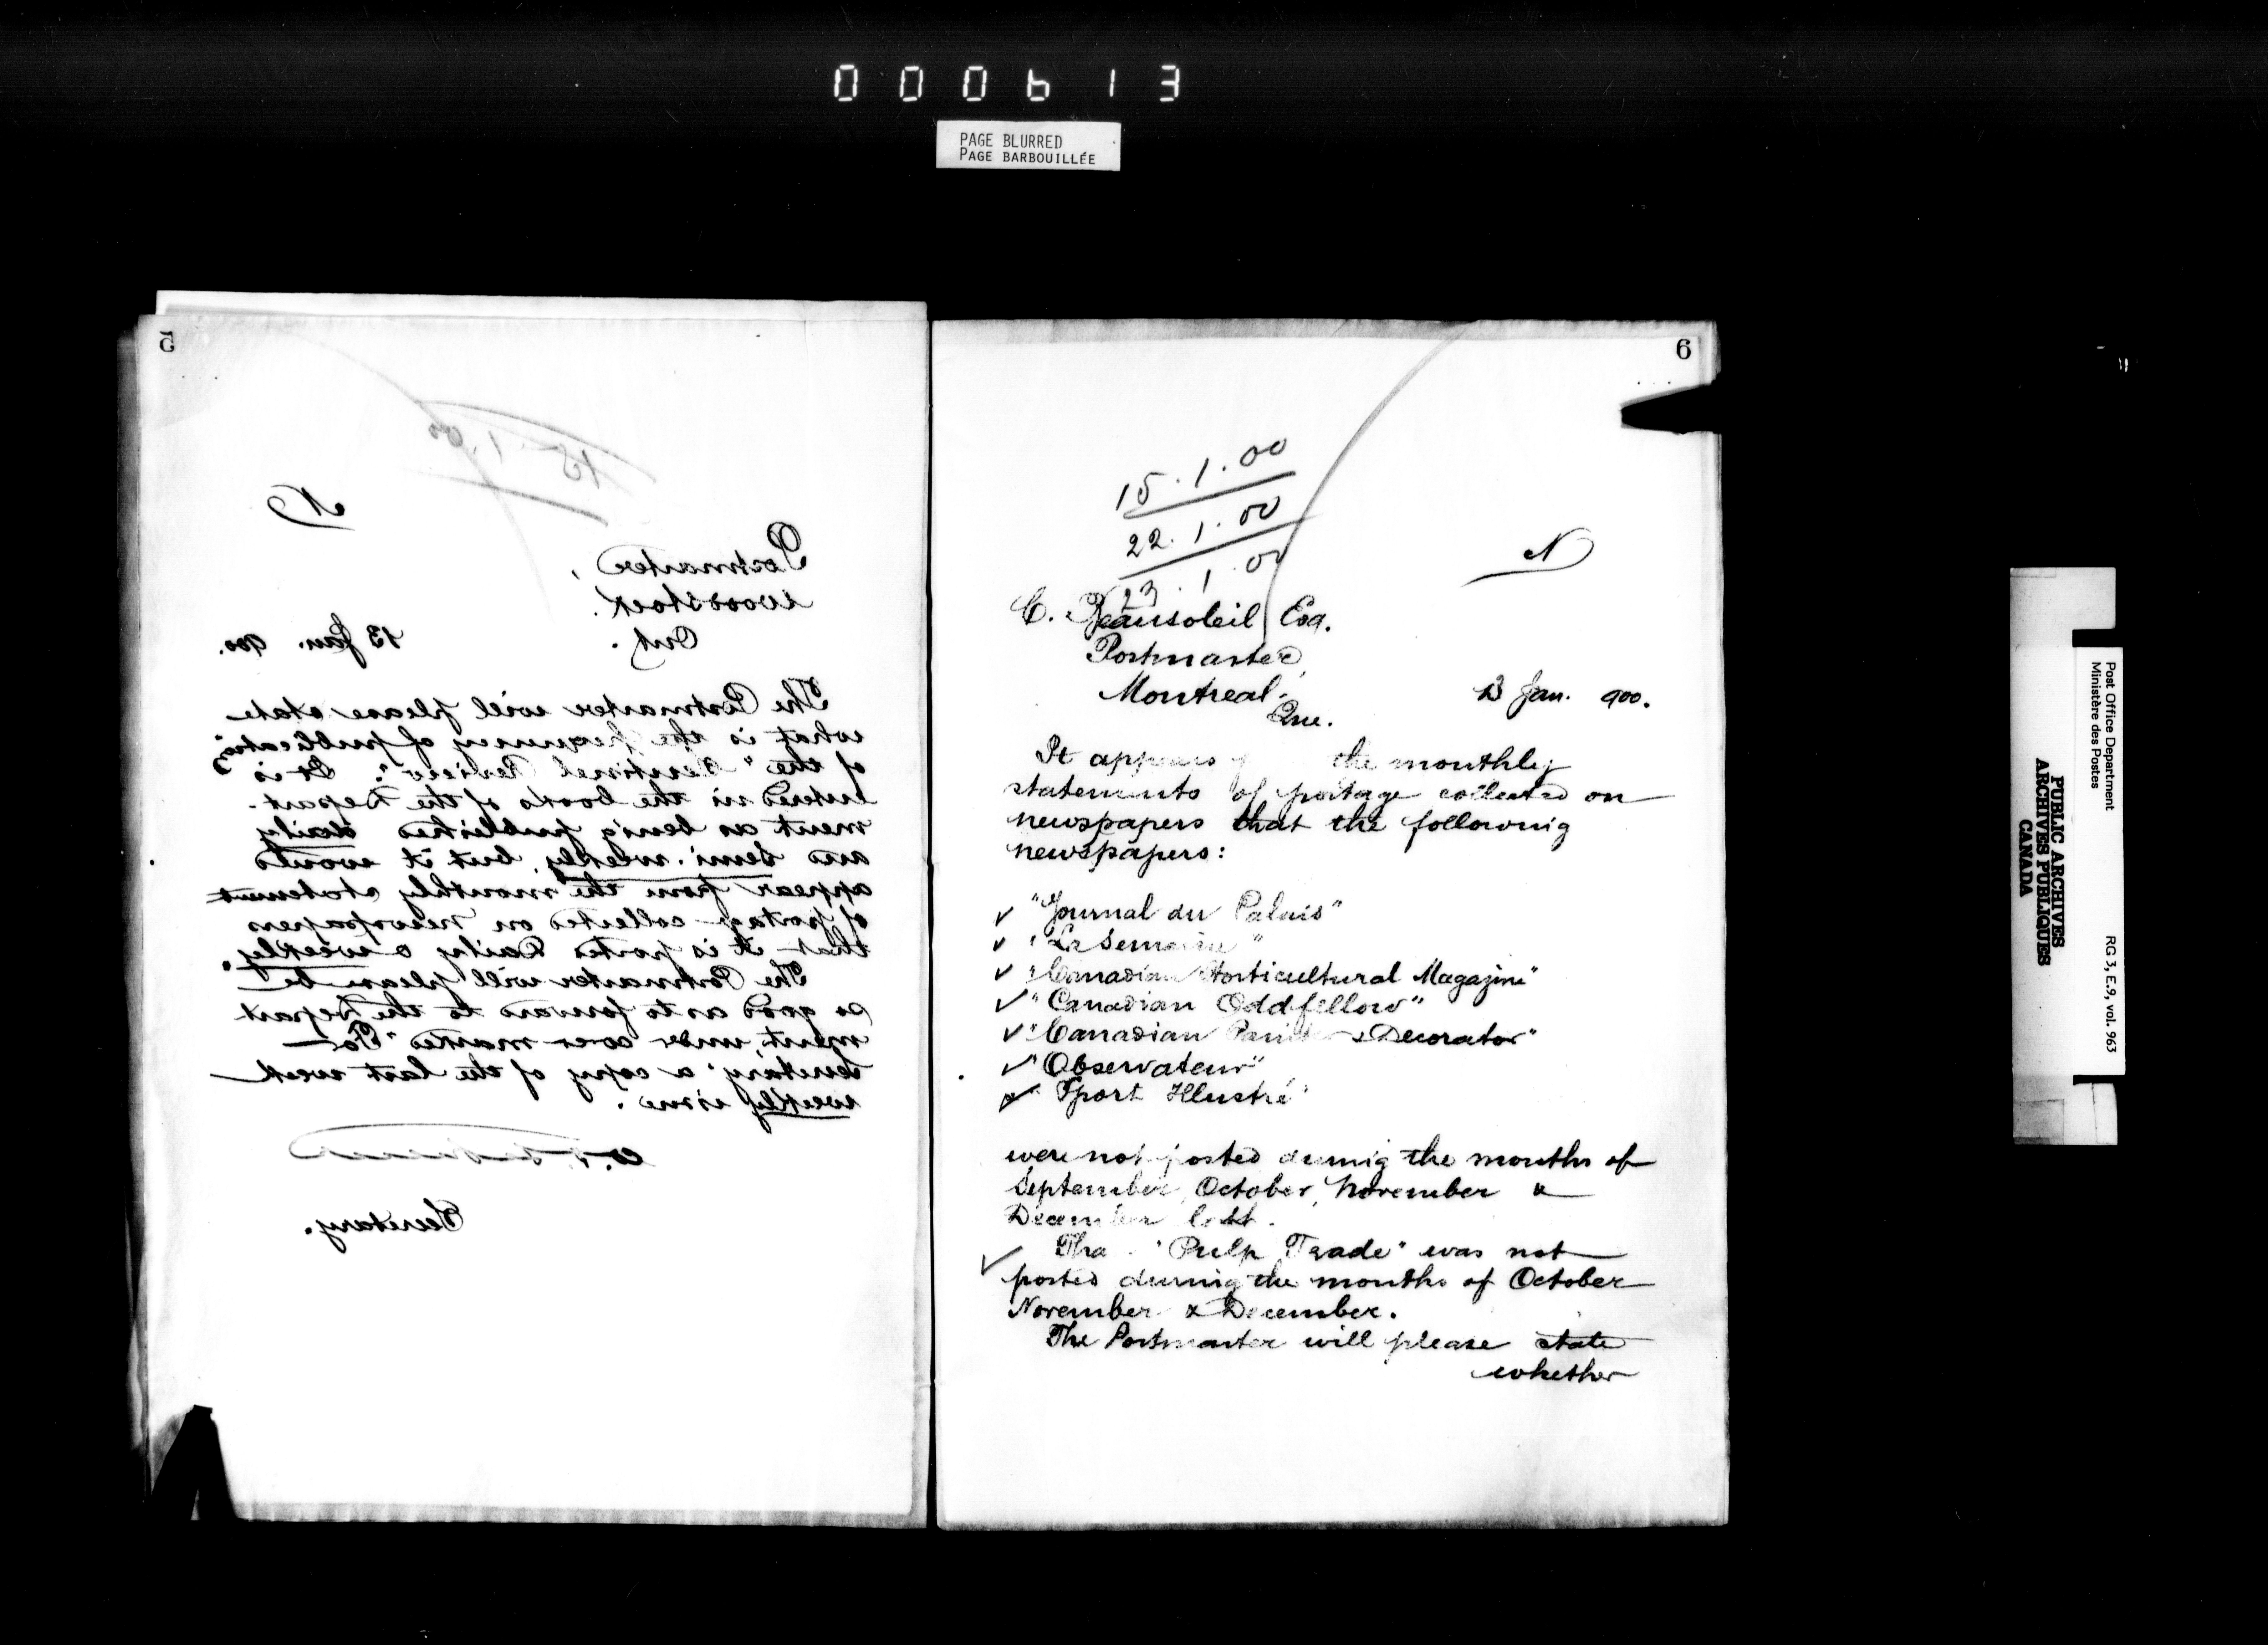 000613
PAGE BLURRED
PAGE BARBOUILLÉE
5
15.1.00
N
Postmaster,
Woodstock.
Ont.
13 Jan. 900.
The Postmaster will please state
what is the frequency of publication
of the "Sentinel Review". It is
entered in the books of the Depart-
ment as being published daily
and semi-weekly, but it would
appear from the monthly statement
of postage collected on newspapers
that it is posted daily & weekly.
The Postmaster will please be
so good as to forward to the Depart
ment, under cover marked "For
Secretary" a copy of the last week
weekly issue.
Secretary.
6
15.1.00
22.1.00
23.1.00
N
C. Beausoleil Esq.
Postmaster,
Montreal.
Que.
13 Jan. 900.
It appears the monthly
statements of postage collected on
newspapers that the following
newspapers:
"Journal du Palais"
"La Semaine"
"Canadian Horticultural Magazine"
"Canadian Oddfellow"
"Canadian Paint & Decorator"
"Observateur"
"Sport Illustré"
were not posted during the months of
September, October, November &
December last.
The "Pulp Trade" was not
posted during the months of October
November & December.
The Postmaster will please state
whether
Post Office Department
Ministère des Postes
RG 3, E.9, vol. 963
PUBLIC ARCHIVES
ARCHIVES PUBLIQUES
CANADA